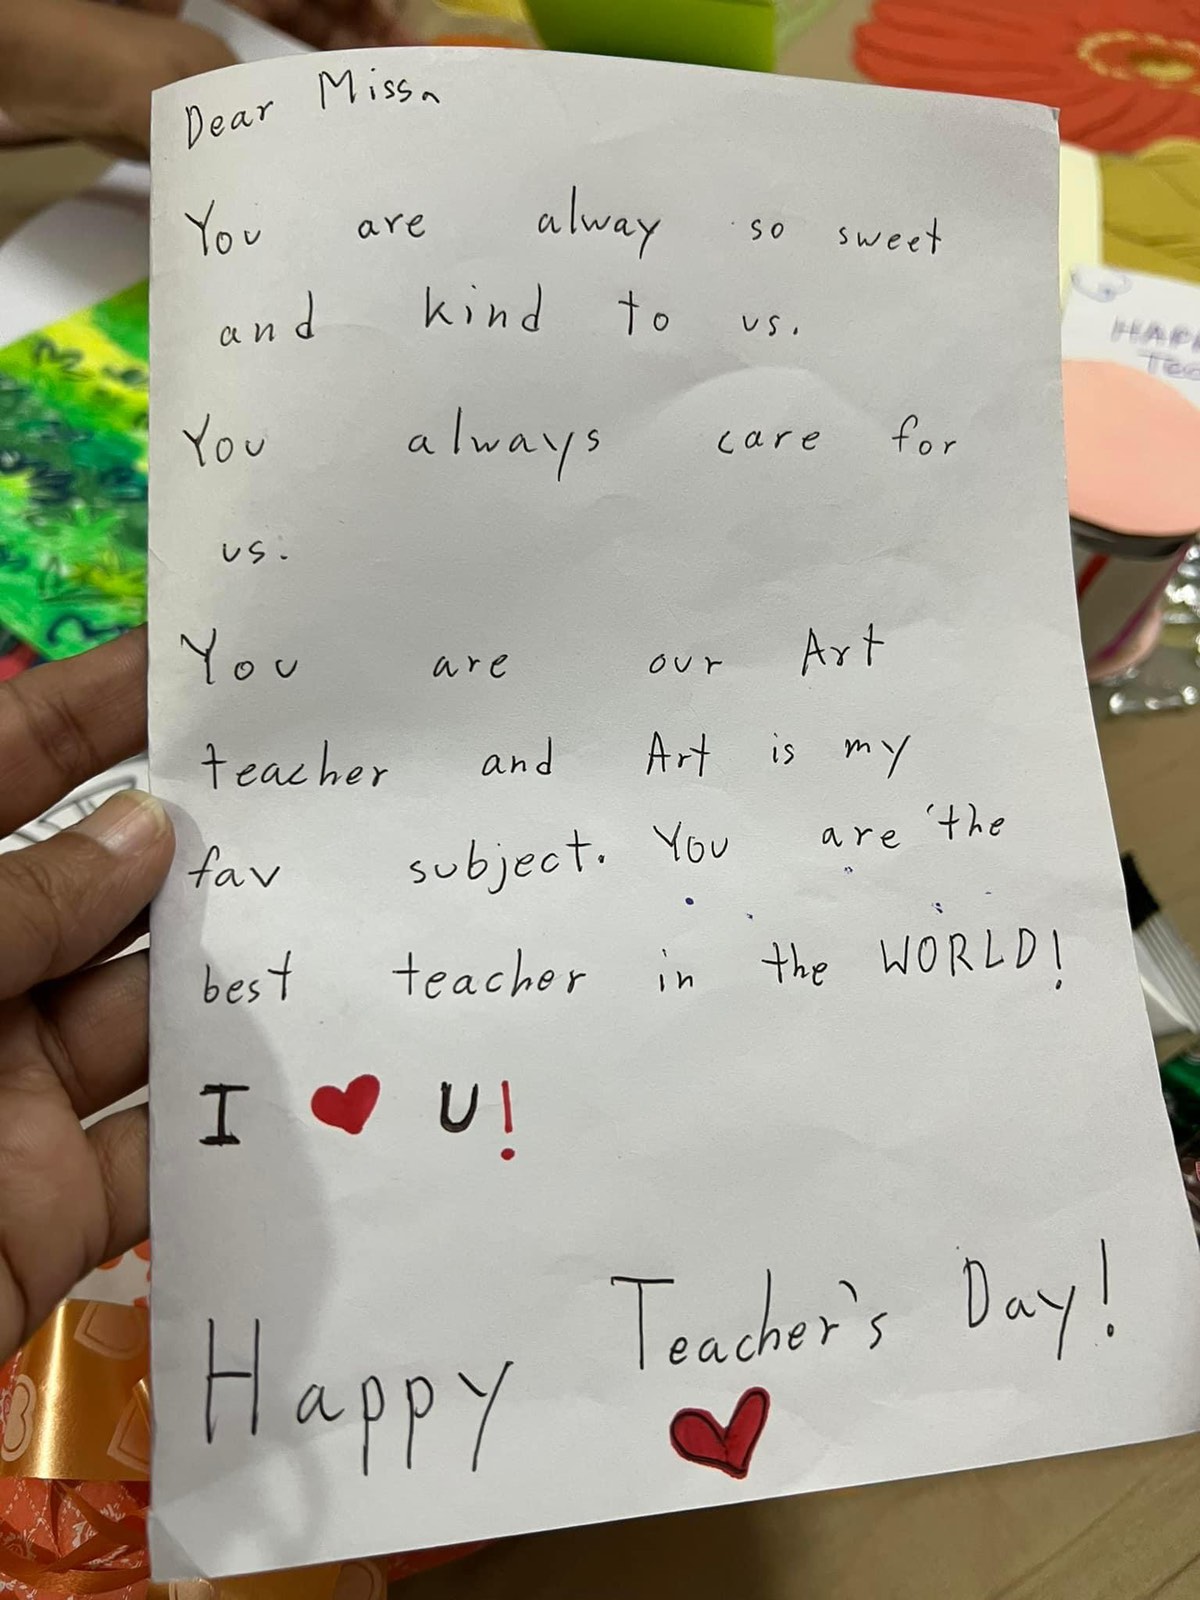 Dear Miss,
You are alway so sweet
and kind to us.
You always care for
us.
You are our Art
teacher and Art is my
fav subject. You are the
best teacher in the WORLD!
I ❤ U!
Happy Teacher's Day!
HAP